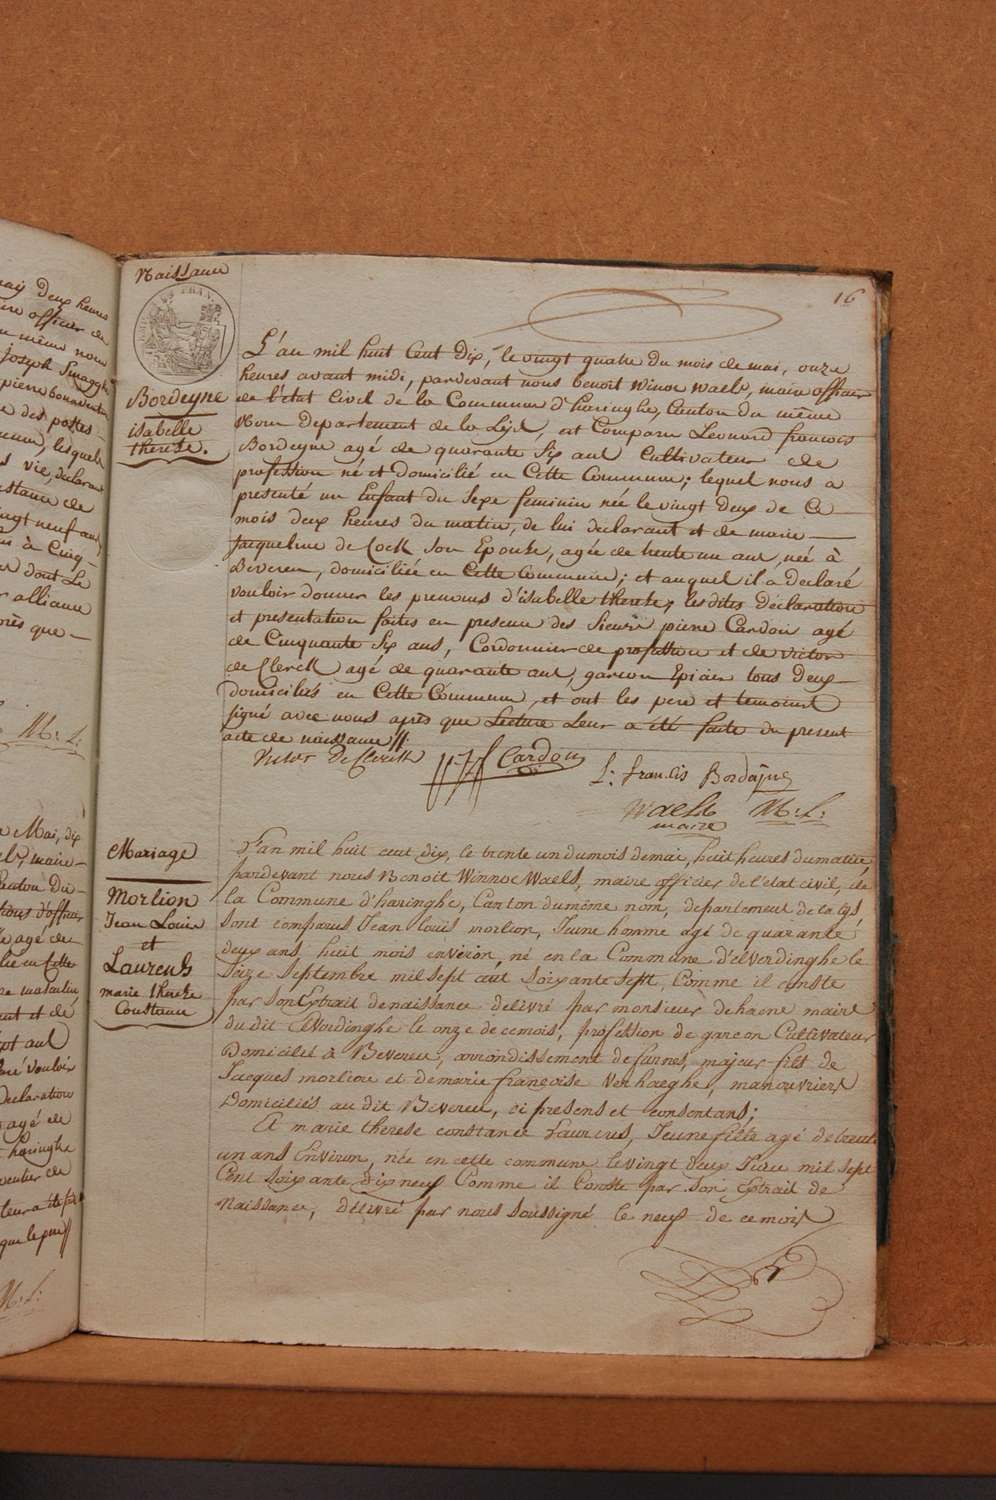 may deux heures
officier de
même nom
joseph
pierre bonaventure
des postes
lesquels
vie, declarant
Constance de
vingt neuf ans
à Cinq
dont le
alliance
après que
M. L.
Mai, dix
maire
Canton du
d'officier
agé de
en Cette
masculin
et de
sept aut
vouloir
declaration
agé de
haringhe
de
que le
M. L.
Naissance
Bordeyne
isabelle
therese.
16
L'an mil huit Cent Dix, le vingt quatre du mois de mai, onze
heures avant midi, pardevant nous benoit Winoc Waels, maire officier
de l'état Civil de la Commune d'haringhe, Canton du même
Nom Departement de la Lys, est Comparu Leonard francois
Bordeyne agé de quarante Six ans Cultivateur de
profession né et Domicilié en Cette Commune; lequel nous a
presenté un Enfant du Sexe feminin née le vingt deux de Ce
mois deux heures du matin, de lui declarant et de marie
Jacqueline de Cock Son Epouse, agée de trente un ans, née à
Beveren, domiciliée en Cette Commune; et auquel il a declaré
vouloir donner les prenoms d'isabelle therese; lesdites declaration
et presentation faites en presence des Sieurs pierre Cardon agé
de Cinquante Six ans, Cordonnier de profession et de victor
de Clerck agé de quarante ans, garcon Epicier tous deux
domiciliés en Cette Commune, et ont les pere et temoins
signé avec nous après que Lecture Leur a été faite du present
acte de naissance //.
Victor De Clerck
Cardon
L: francis Bordeyne
Waels M. L.
maire
Mariage
Morlion
Jean Louis
et
Laurens
marie therese
Constance
L'an mil huit cent dix, le trente un du mois de mai, huit heures du matin
pardevant nous Benoit Winnoc Waels, maire officier de l'etat civil, de
la Commune d'haringhe, Canton du même nom, departement de la Lys
sont comparus Jean louis morlion, Jeune homme agé de quarante
deux ans, huit mois environ, né en la Commune d'elverdinghe le
Seize Septembre mil sept cent soixante sept, Comme il conste
par son Extrait de naissance delivré par monsieur dehaene maire
du dit Elverdinghe le onze de ce mois, profession de garcon Cultivateur
Domicilié à Beveren, arrondissement de furnes, majeur fils de
Jacques morlion et de marie francoise Verhaeghe, manouvriers
Domiciliés au dit Beveren, ci presens et consentans;
Et marie therese constance Laurens, Jeune fille agé de trente
un ans Environ, née en cette commune le vingt deux Juin mil sept
Cent soixante dix neuf Comme il Conste par Son Extrait de
Naissance, délivré par nous soussigné le neuf de ce mois